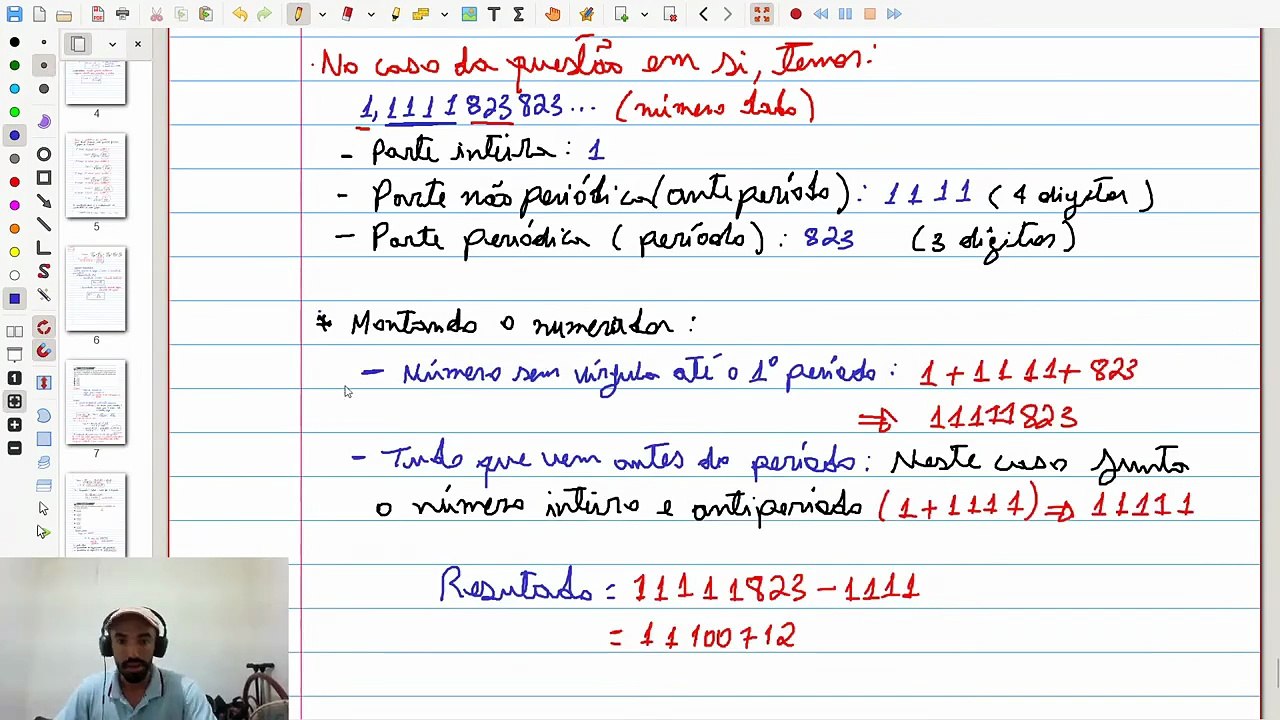 No caso da questão em si, temos:
1,1111823823... (número dado)
- Parte inteira: 1
- Parte não periódica (anteperíodo): 1111 (4 digitos)
- Parte periódica (período): 823 (3 dígitos)
* Montando o numerador:
- Número sem vírgula até o 1º período: 1+1111+823
⇒ 11111823
- Tudo que vem antes do período: Neste caso junta
o número inteiro e antiperiodo (1+1111) ⇒ 11111
Resultado = 11111823-1111
= 11100712
4
5
6
7